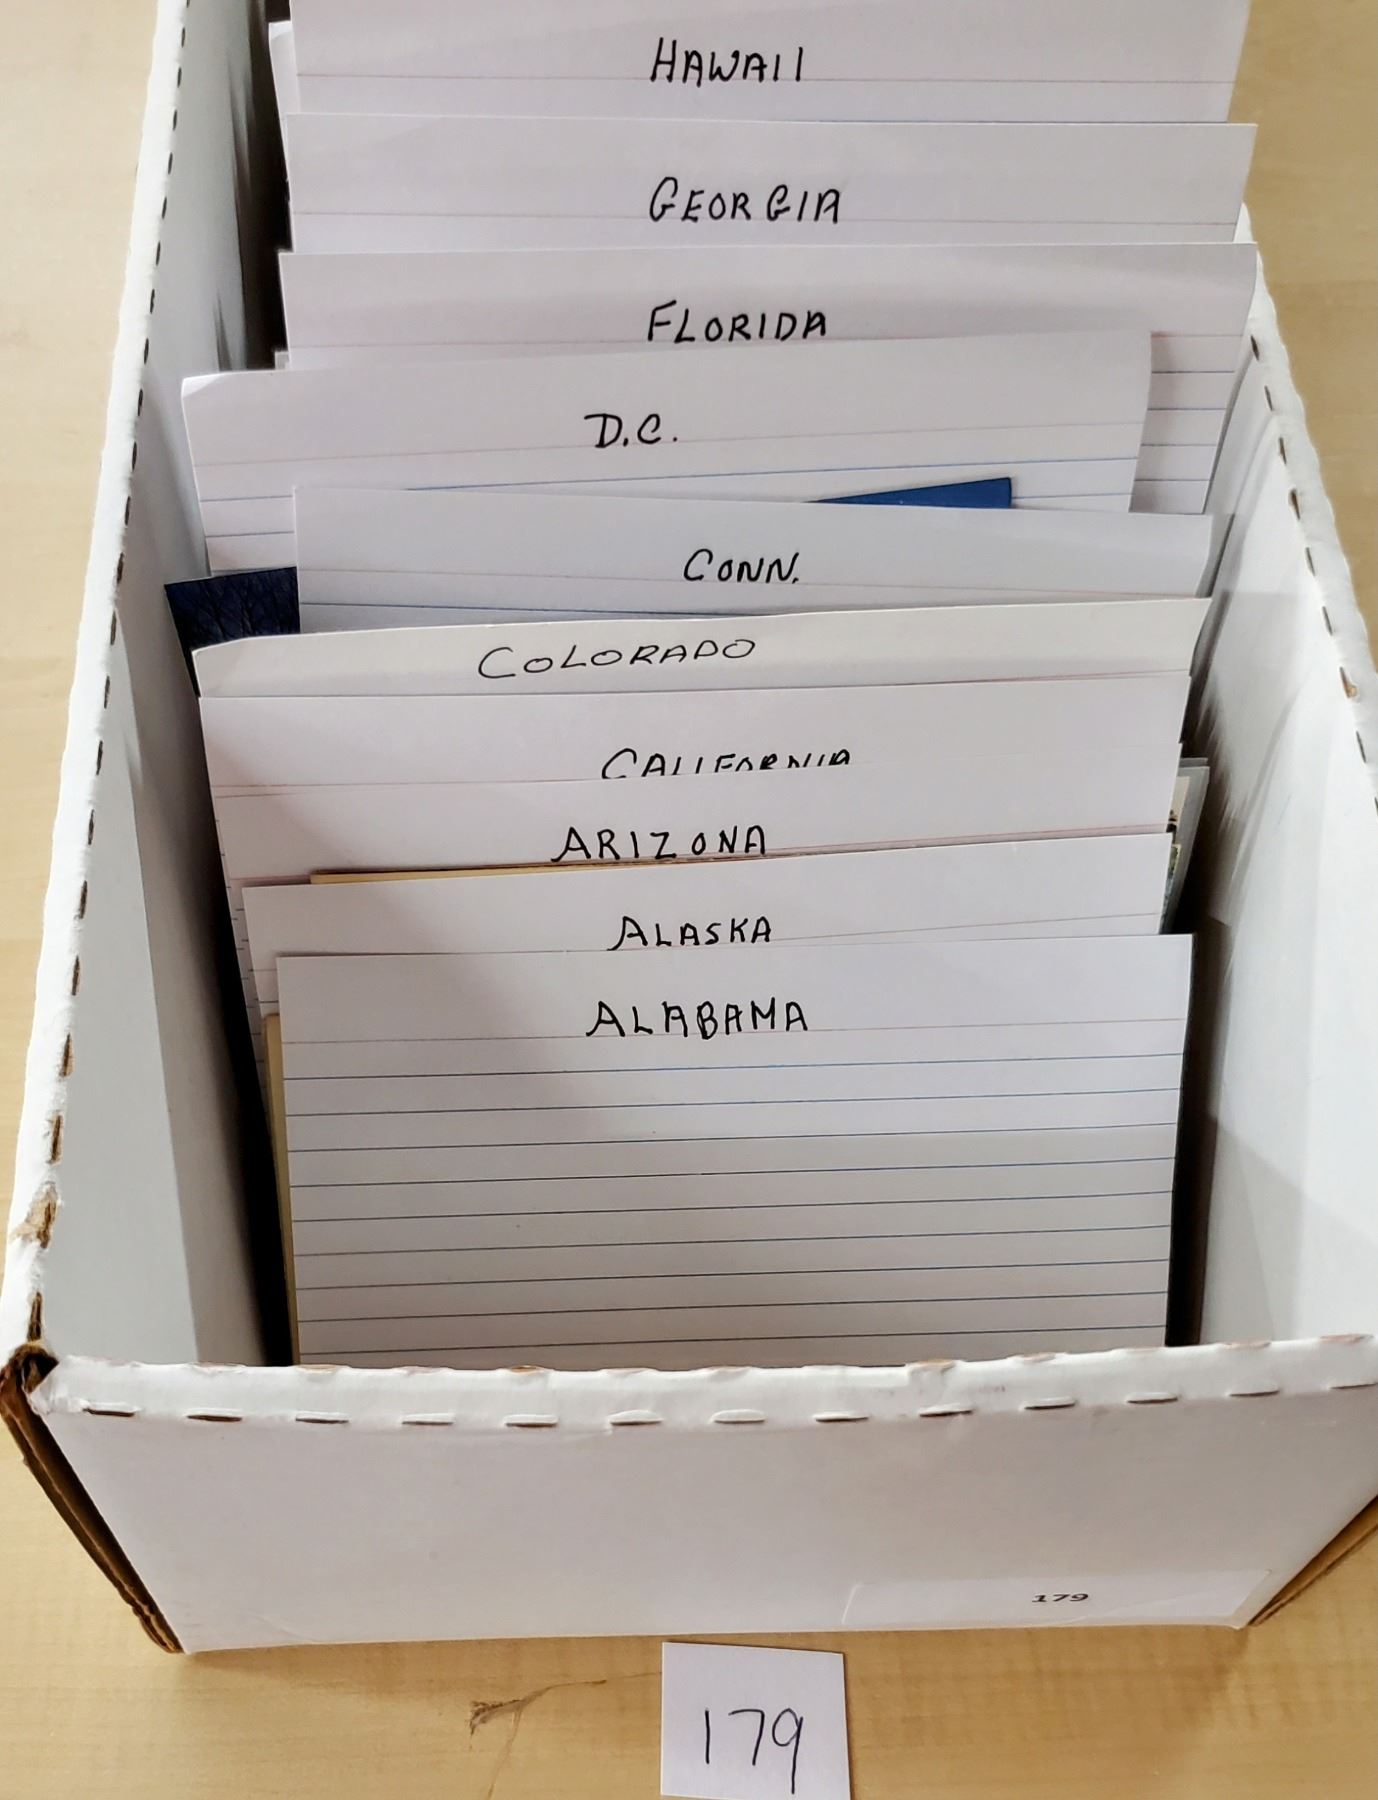 HAWAII
GEORGIA
FLORIDA
D.C.
CONN.
COLORADO
CALIFORNIA
ARIZONA
ALASKA
ALABAMA
179
179